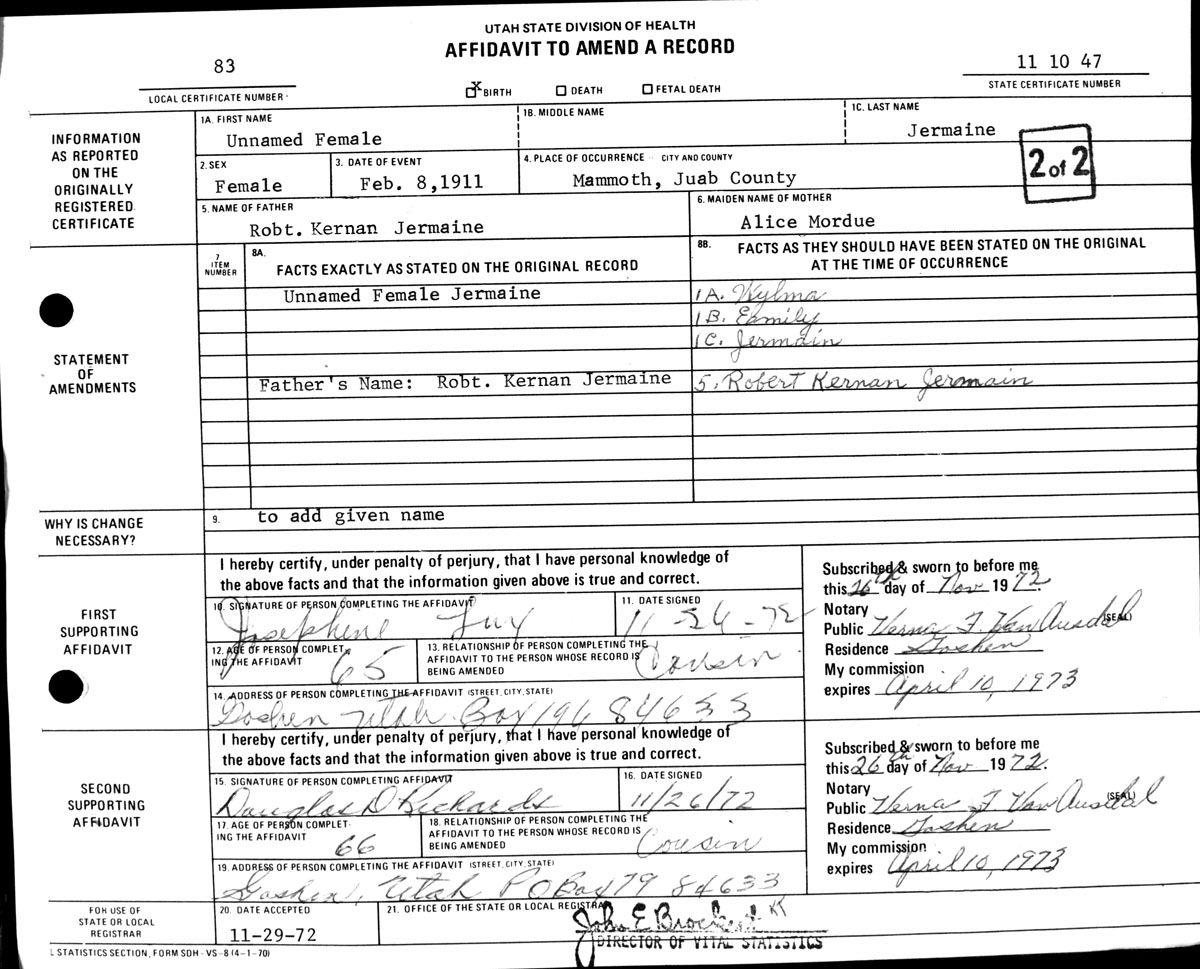 UTAH STATE DIVISION OF HEALTH
AFFIDAVIT TO AMEND A RECORD
83
LOCAL CERTIFICATE NUMBER
x BIRTH DEATH FETAL DEATH
11 10 47
STATE CERTIFICATE NUMBER
INFORMATION
AS REPORTED
ON THE
ORIGINALLY
REGISTERED
CERTIFICATE
1A. FIRST NAME
Unnamed Female
1B. MIDDLE NAME
1C. LAST NAME
Jermaine
2. SEX
Female
3. DATE OF EVENT
Feb. 8,1911
4. PLACE OF OCCURRENCE - CITY AND COUNTY
Mammoth, Juab County
2 of 2
5. NAME OF FATHER
Robt. Kernan Jermaine
6. MAIDEN NAME OF MOTHER
Alice Mordue
STATEMENT
OF
AMENDMENTS
7.
ITEM
NUMBER
8A.
FACTS EXACTLY AS STATED ON THE ORIGINAL RECORD
8B.
FACTS AS THEY SHOULD HAVE BEEN STATED ON THE ORIGINAL
AT THE TIME OF OCCURRENCE
Unnamed Female Jermaine
1A. Wylma
1B. Emily
1C. Jermain
Father's Name: Robt. Kernan Jermaine
5. Robert Kernan Jermain
WHY IS CHANGE
NECESSARY?
9. to add given name
FIRST
SUPPORTING
AFFIDAVIT
I hereby certify, under penalty of perjury, that I have personal knowledge of
the above facts and that the information given above is true and correct.
10. SIGNATURE OF PERSON COMPLETING THE AFFIDAVIT
Josephine
11. DATE SIGNED
11-26-72
12. AGE OF PERSON COMPLET-
ING THE AFFIDAVIT
65
13. RELATIONSHIP OF PERSON COMPLETING THE
AFFIDAVIT TO THE PERSON WHOSE RECORD IS
BEING AMENDED
Cousin
14. ADDRESS OF PERSON COMPLETING THE AFFIDAVIT (STREET, CITY, STATE)
Goshen Utah Box 196 84633
Subscribed & sworn to before me
this 26th day of Nov 1972.
Notary
Public Verna F. Van Ausdal (SEAL)
Residence Goshen
My commission
expires April 10, 1973
SECOND
SUPPORTING
AFFIDAVIT
I hereby certify, under penalty of perjury, that I have personal knowledge of
the above facts and that the information given above is true and correct.
15. SIGNATURE OF PERSON COMPLETING AFFIDAVIT
Douglas D Richards
16. DATE SIGNED
11/26/72
17. AGE OF PERSON COMPLET-
ING THE AFFIDAVIT
66
18. RELATIONSHIP OF PERSON COMPLETING THE
AFFIDAVIT TO THE PERSON WHOSE RECORD IS
BEING AMENDED
Cousin
19. ADDRESS OF PERSON COMPLETING THE AFFIDAVIT (STREET, CITY, STATE)
Goshen, Utah P O Box 79 84633
Subscribed & sworn to before me
this 26th day of Nov 1972.
Notary
Public Verna F. Van Ausdal (SEAL)
Residence Goshen
My commission
expires April 10, 1973
FOR USE OF
STATE OR LOCAL
REGISTRAR
20. DATE ACCEPTED
11-29-72
21. OFFICE OF THE STATE OR LOCAL REGISTRAR
John E Brockert KT
DIRECTOR OF VITAL STATISTICS
L STATISTICS SECTION, FORM SDH - VS - 8 (4-1-70)